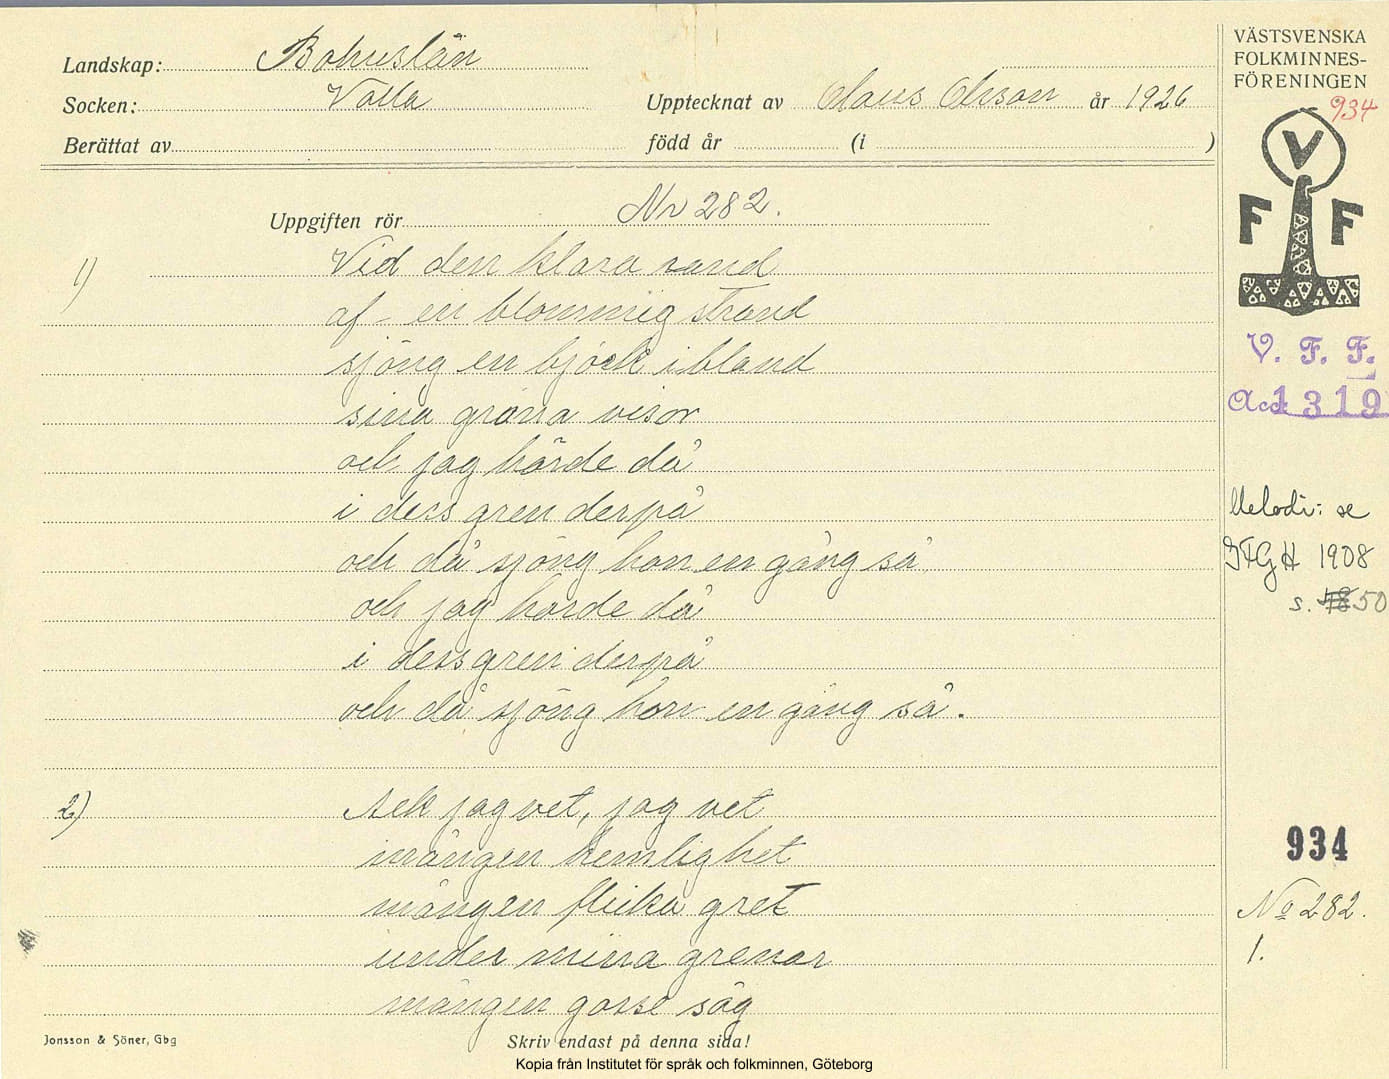 Landskap: Bohuslän
Socken: Valla
Upptecknat av Claus Olsson år 1926
Berättat av
född år (i )
VÄSTSVENSKA
FOLKMINNES-
FÖRENINGEN
934
V
F F
V. F. F.
Acc 1319
Uppgiften rör Nr 282.
1) Vid den klara rand
af - en blommig strand
sjöng en björk ibland
sina gröna visor
och jag hörde då
i dess gren derpå
och då sjöng hon en gång så
och jag hörde då
i dess gren derpå
och då sjöng hon en gång så.
Melodi: se
GFGH 1908
s. 50
2) Ack jag vet, jag vet
mången hemlighet
mången flicka gret
under mina grenar
mången gosse såg
934
No 282.
1.
Jonsson & Söner, Gbg
Skriv endast på denna sida!
Kopia från Institutet för språk och folkminnen, Göteborg